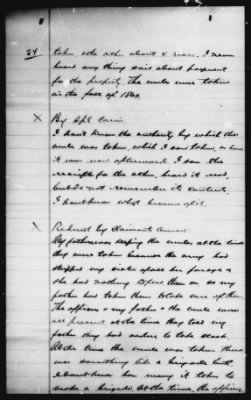 34 taken, the other about 8 years. I never
heard any thing said about payment
for the property. The mules were taken
in the fall of 1864.
X By Spl. Com
I don't know the authority by which the
mules was taken, which I saw taken,
it was ever afterward I saw the
receipt for the other, heard it read,
but do not remember its contents.
I don't know what became of it.
X Redirect by Claimants Counsel
My father was keeping the mules at the time
they were taken because the army had
stripped my sister's place her forage &
she had nothing to feed them on so my
father had taken them to take care of them
The officers & my father & the mules were
all present at the time they told my
father they had orders to take stock
At the time the mules was taken there
was something like a brigade but
I don't know how many it takes to
make a brigade. At the time the officers